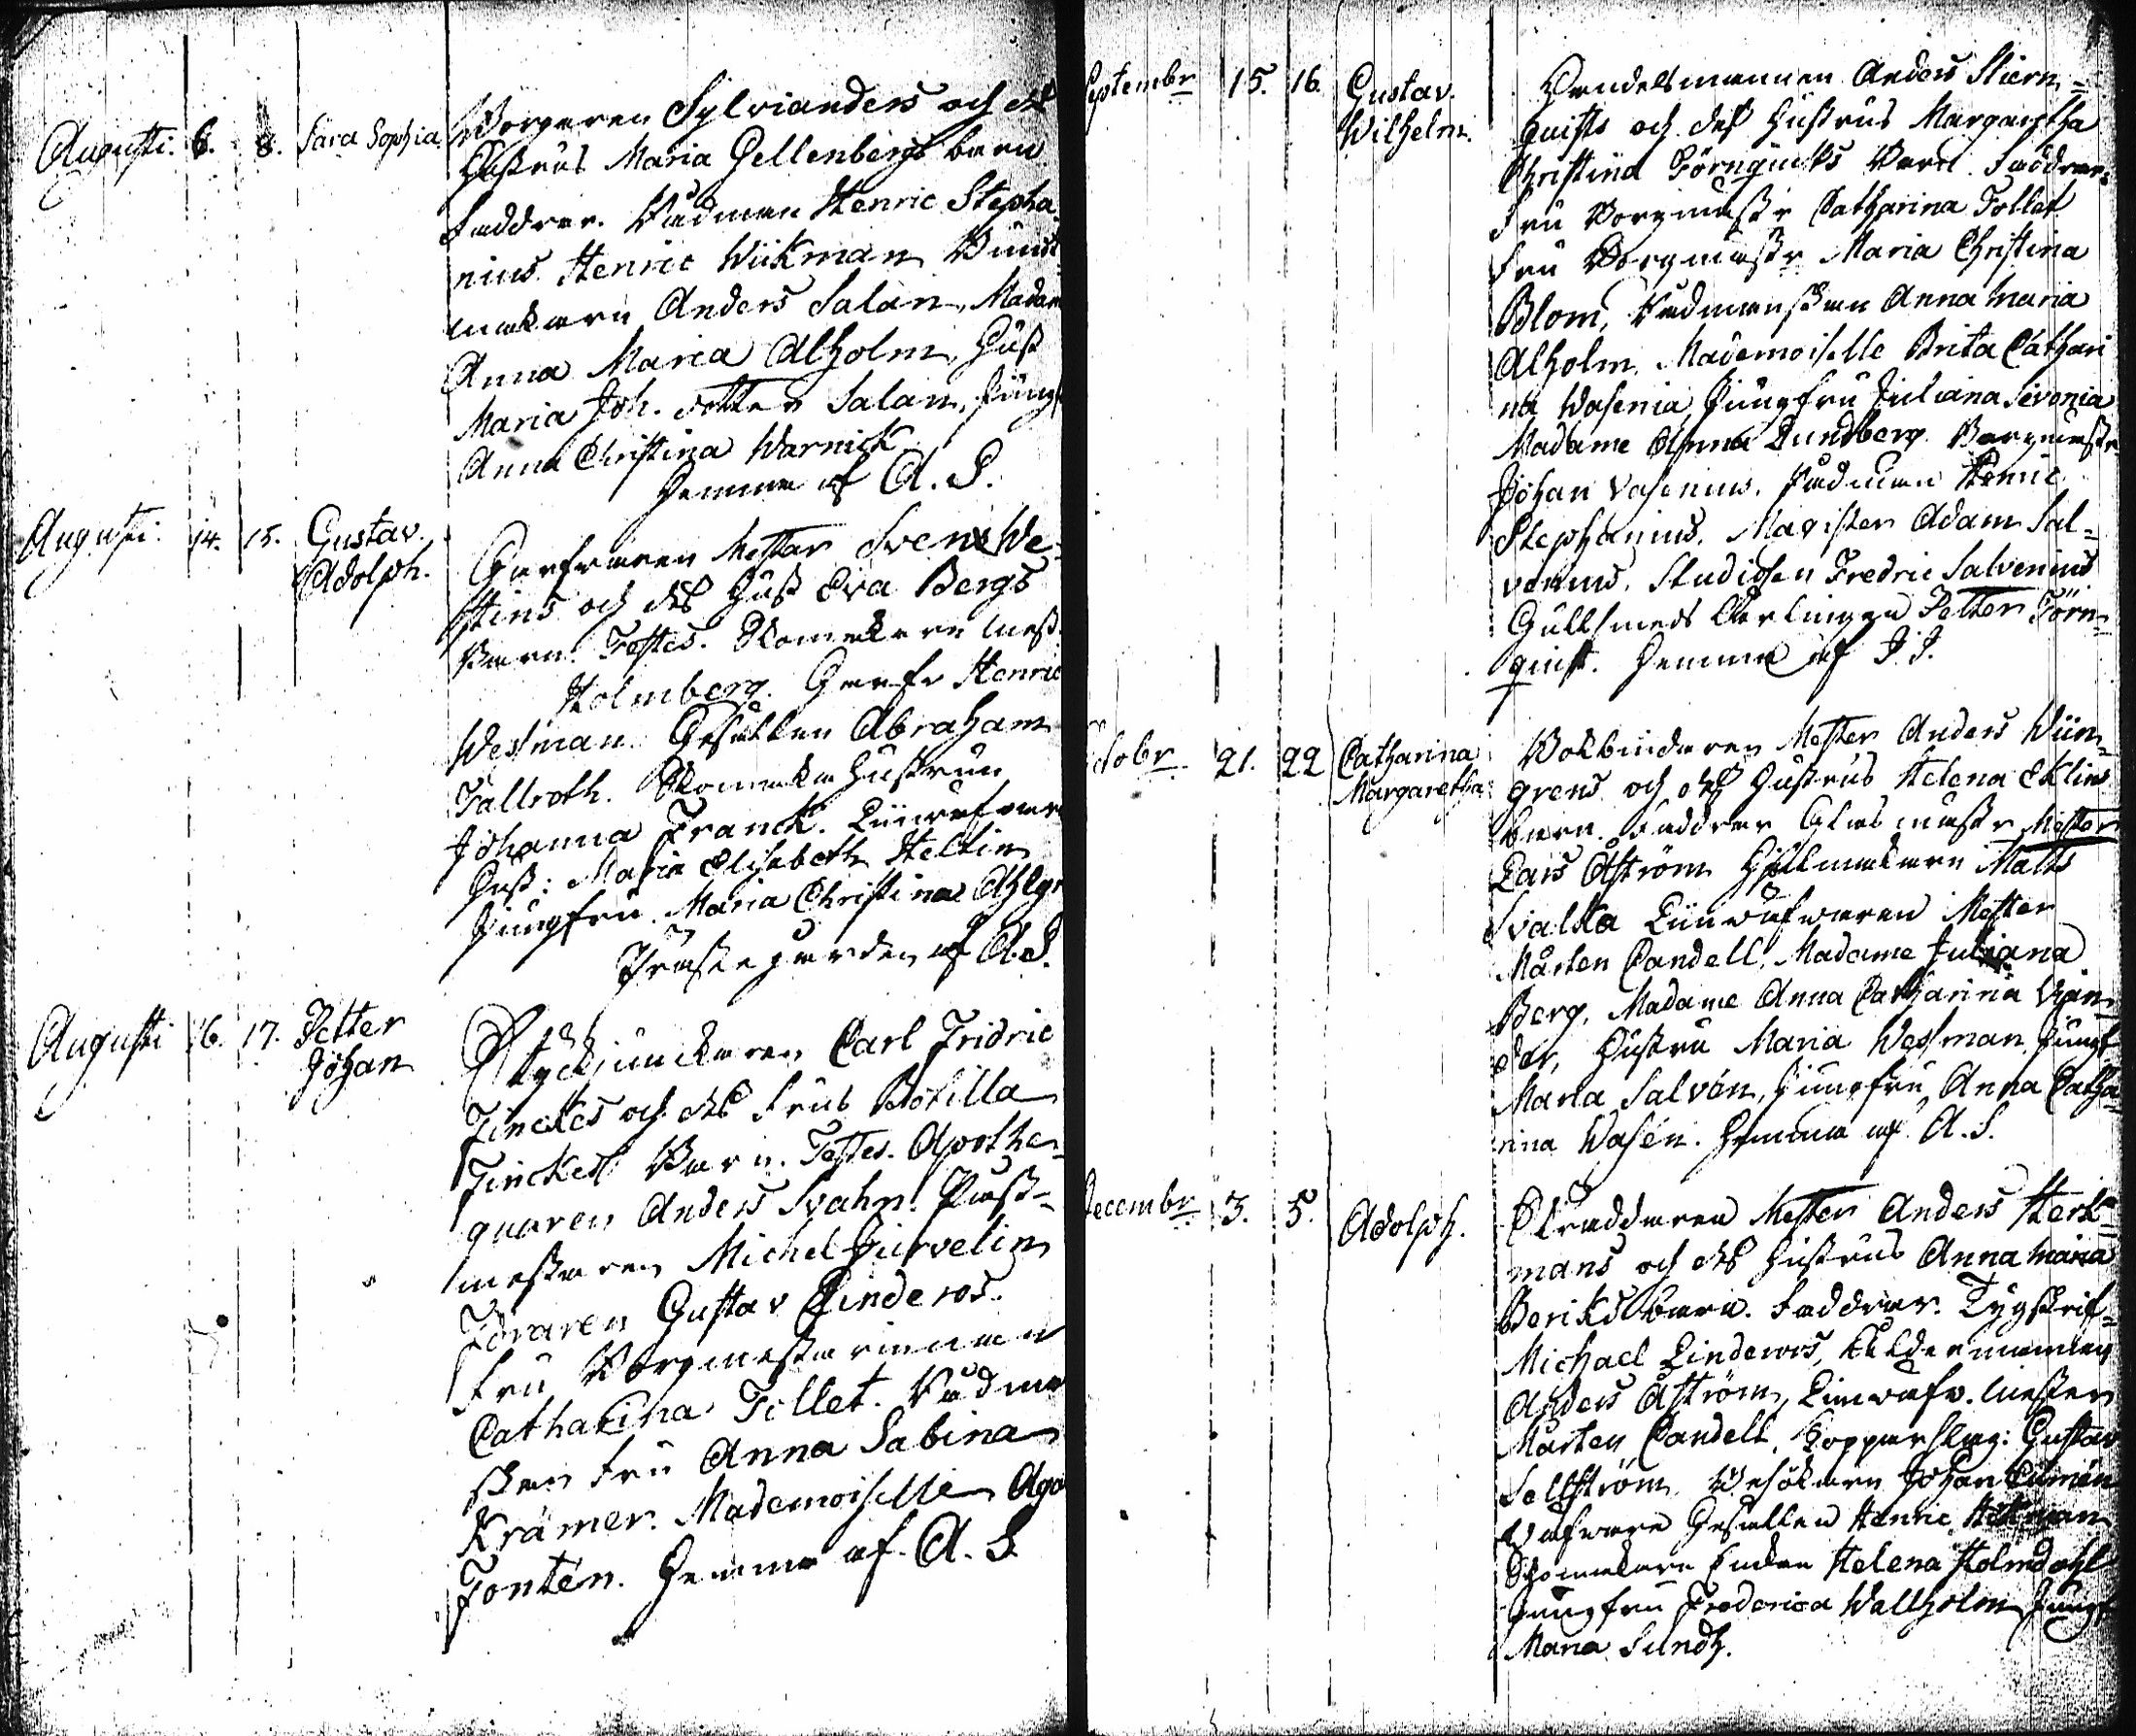 Augusti. 6. 8. Sara Sophia.
Borgaren Sylvianders och deß
Hustrus Maria Gellenbergs barn
Faddrar. Rådman Henric Stepha
nius. Henric Wikman Bunt
makaren Anders Salan, Madam
Anna Maria Alholm, Hust
Maria Joh. dotter Salan, Jungf
Anna Christina Warnick
Hemma af A. S.
Augusti. 14. 15. Gustav.
Adolph.
Garfvaren Mester Sven We
stins och deß Hust Eva Bergs
Barn. Testes. Skomakaren Mest
Holmberg. Garfv Henric
Westman. Gesällen Abraham
Tallroth. Skomakare Hustrun
Johanna Franck. Linvefvare
Hust: Maria Elisabeth Hellin
Jungfru. Maria Christina Ahlgr
Prästegården af A. S.
Augusti 16. 17. Petter
Johan
Styckjunckaren Carl Fridric
Finckes och deß Frus Botilla
Finckes Barn. Testes. Apothe
quaren Anders Svahn. Post-
mestaren Michel Jurvelin
Gustav Linderos.
Fru Borgmestarinnan
Catharina Tollet. Rådman
skan Fru Anna Sabina
Krämer. Mademoiselle Aga
Fontén. Hemma af A. S.
Septembr 15. 16. Gustav.
Wilhelm.
Handelsmannen Anders Stiern=
quists och deß Hustrus Margaretha
Christina Törnquists Barn. Faddrar.
Fru Borgmestr Catharina Tollet
Fru Borgmestr Maria Christina
Blom, Rådmanskan Anna Maria
Alholm. Mademoiselle Brita Cathari
na Wasenia, Jungfru Juliana Sevonia
Madame Anna Lundberg. Borgmestr
Johan Vasenius. Rådman Henric
Stephanius. Magister Adam Sal=
venius. Studiosen Fredric Salvenius
Gullsmeds Lärlingen Petter Törn=
quist. Hemma af J. J.
21. 22 Catharina
Margaretha
Bokbindaren Mester Anders Wiin=
grens och deß Hustrus Helena Eklins
barn. Faddrar Glas mestr Mester
Lars Åström Mats
Svalka Linvefvaren Mester
Mårten Candell, Madame Juliana
Berg, Madame Anna Catharina
der, Hustru Maria Westman. Jungf
Maria Salvén, Jungfru Anna Catha
rina Wasén. Hemma af A. S.
Decembr 3. 5. Adolph.
Skräddaren Mester Anders Herk=
mans och deß Hustrus Anna Maria
Beriks barn. Faddrar. Tygskrif=
Michael Linderos, Åldermannen
Anders Åström, Linvefv. Mester
Mårten Candell, Kopparslag: Gustav
Sellström Johan
Gesällen Henric
Skomakare Enkan Helena Holmdahl
Jungfru Frederica Wallholm Jungf
Maria Sundh.